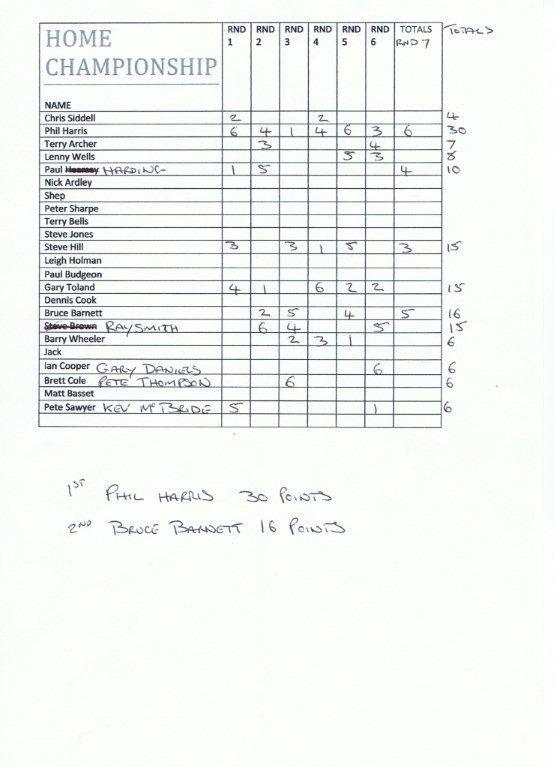 HOME CHAMPIONSHIP RND 1 RND 2 RND 3 RND 4 RND 5 RND 6 TOTALS RND 7 TOTALS
NAME
Chris Siddell 2 2 4
Phil Harris 6 4 1 4 6 3 6 30
Terry Archer 3 4 7
Lenny Wells 5 3 8
Paul HARDING 1 5 4 10
Nick Ardley
Shep
Peter Sharpe
Terry Bells
Steve Jones
Steve Hill 3 3 1 5 3 15
Leigh Holman
Paul Budgeon
Gary Toland 4 1 6 2 2 15
Dennis Cook
Bruce Barnett 2 5 4 5 16
Steve Brown RAY SMITH 6 4 5 15
Barry Wheeler 2 3 1 6
Jack
Ian Cooper GARY DANIELS 6 6
Brett Cole PETE THOMPSON 6 6
Matt Basset
Pete Sawyer KEV McBRIDE 5 1 6
1ST PHIL HARRIS 30 POINTS
2ND BRUCE BARNETT 16 POINTS